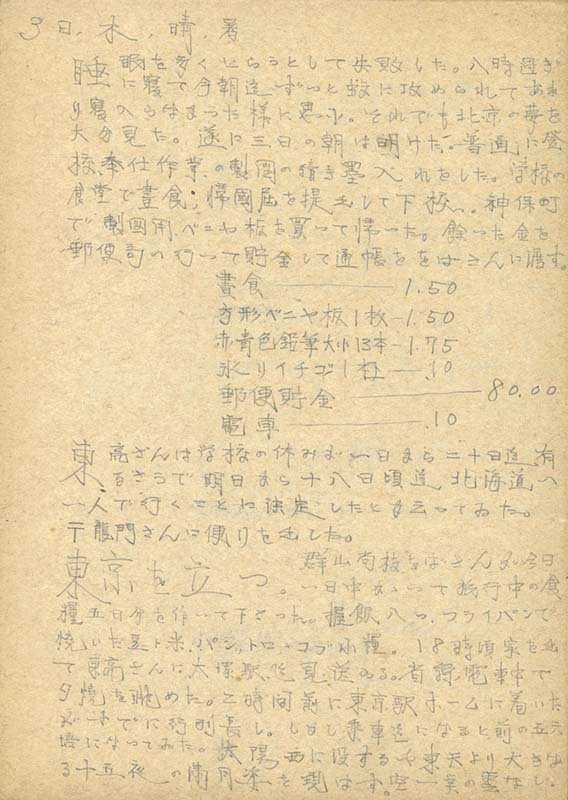 3日，木，晴，暑
睡眠を多くとらうとして失敗した。八時過ぎ
に寝て今朝迄ずっと蚊に攻められてあま
り寝入らなまった様に思ふ。それでも北京の夢を
大分見た。遂に三日の朝は明けた。普通に登
校，奉仕作業の製図の続き墨入れをした。学校の
食堂で晝食；帰國届を提出して下校、神保町
で製図用ベニヤ板を買って帰った。餘った金を
郵便局の行って貯金して通帳ををばさんに渡す。
晝食 1.50
方形ベニヤ板1枚 1.50
赤青色鉛筆大小13本 1.75
氷りイチゴ1杯 .10
郵便貯金 80.00
電車 .10
東高さんは学校の休みが一日から二十日迄有
るさうで明日から十八日頃迄北海道へ
一人で行くことに決定したとも云ってゐた。
〒龍門さんに便りを出した。
東京を立つ。群山尚枝をばさんが今日
一日中かゝって旅行中の食
糧五日分を作って下さった。握飯八つ，フライパンで
焼いた豆ト米，パン，トロ，コブ小糧。18時頃家を出
て東高さんに大塚駅迄見送らる。省線電車中で
夕焼を眺めた。二時間前に東京駅ホームに着いた
がすでに行列長し。しかし乗車迄になると前の五六
培になってゐた。太陽西に没するや東天より大きな
る十五夜の満月姿を現はす。空一葉の雲なし。